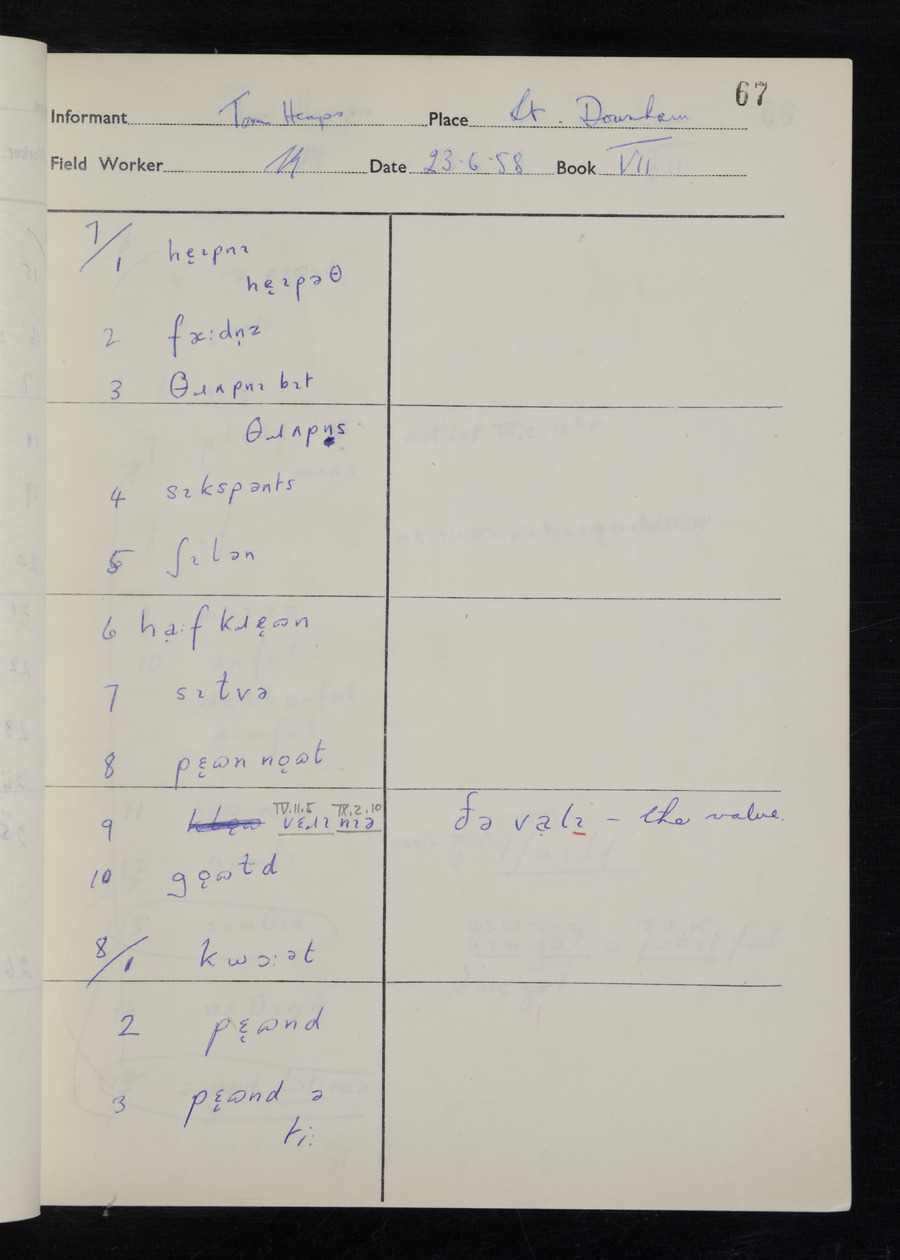 67
Informant Tom Heaps Place Lt. Downham
Field Worker Date 23·6·58 Book VII
7/1 hɛ̨ɪpnɪ
hɛ̨ɪpəθ
2 fæ:dn̩z
3 θɹʌpnɪ bɪt
θɹʌpn̩s
4 sɪkspənts
5 ʃɪlən
6 ha̤:f kɹɛ̨ɷn
7 sɪɫvə
8 pɛ̨ɷn nǫɷt
9 IV.11.5 vɛɹɪ IX.2.10 nɪə ðə va̤lɪ – the value.
10 gǫɷɫd
8/1 kwɔ:ət
2 pɛ̨ɷnd
3 pɛ̨ɷnd ə
ti: